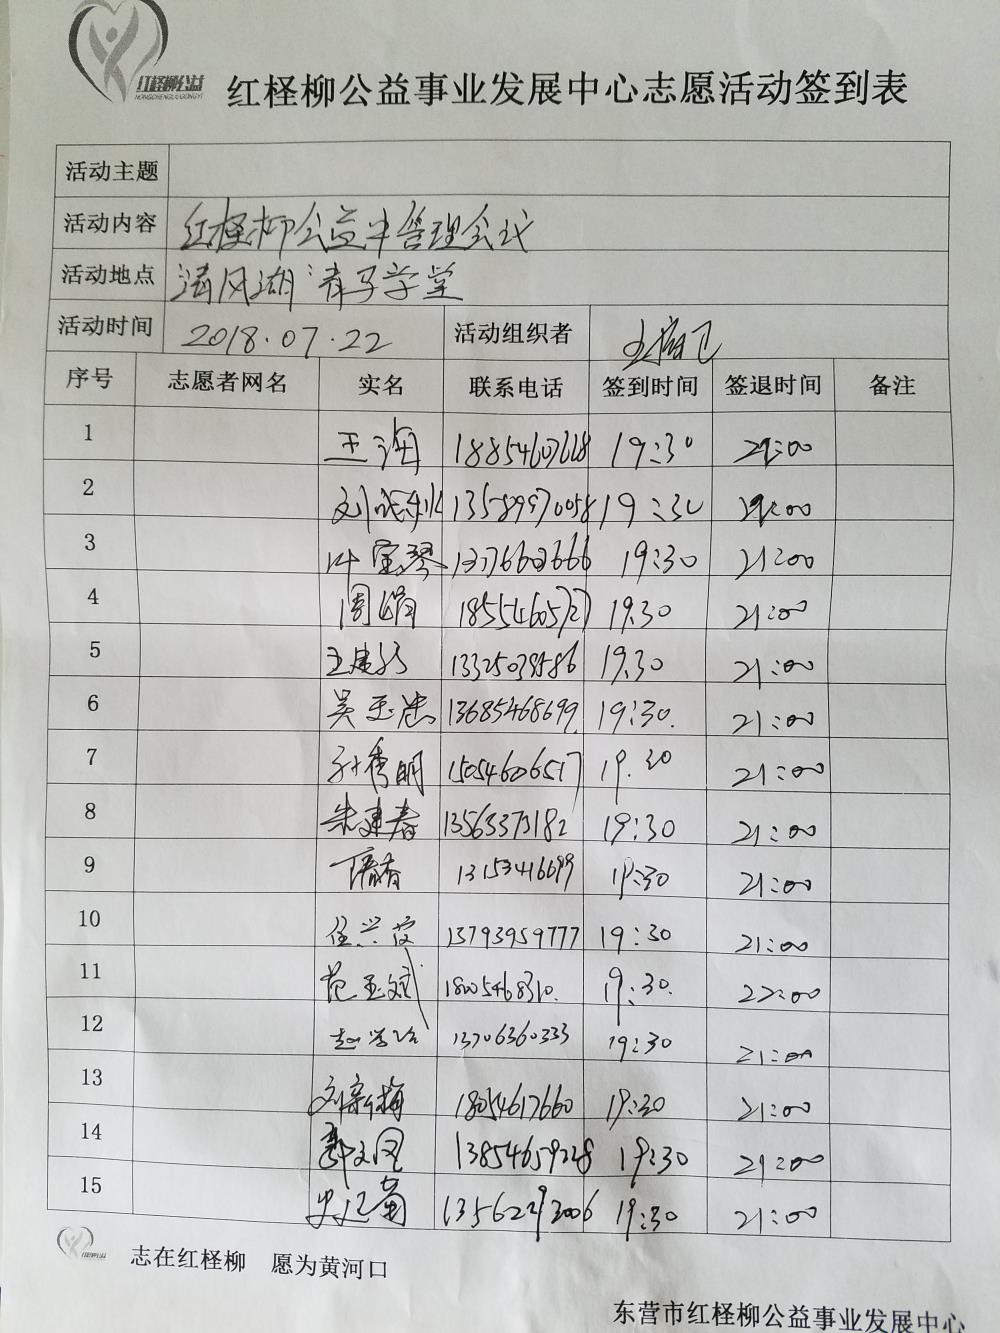 红柽柳公益
HONGCHENGLIUGONGYI
红柽柳公益事业发展中心志愿活动签到表
活动主题
活动内容 红柽柳公益半管理会议
活动地点 清风湖 青子学堂
活动时间 2018.07.22 活动组织者
序号 志愿者网名 实名 联系电话 签到时间 签退时间 备注
1 王海 18854607628 19:30 21:00
2 刘成利 13589970058 19:30 21:00
3 叶宝琴 19:30 21:00
4 周娟 18554605727 19:30 21:00
5 13325039586 19:30 21:00
6 吴玉忠 13685468699 19:30. 21:00
7 孙秀明 15054606517 19.30 21:00
8 朱建春 13563373182 19:30 21:00
9 13153416699 19:30 21:00
10 任兴俊 13793959777 19:30 21:00
11 范玉斌 19:30. 22:00
12 赵学治 13706360333 19:30 21:00
13 刘新梅 18054617660 19:30 21:00
14 郭文国 13854659228 19:30 21:00
15 史延菊 13562293006 19:30 21:00
红柽柳公益
志在红柽柳 愿为黄河口
东营市红柽柳公益事业发展中心